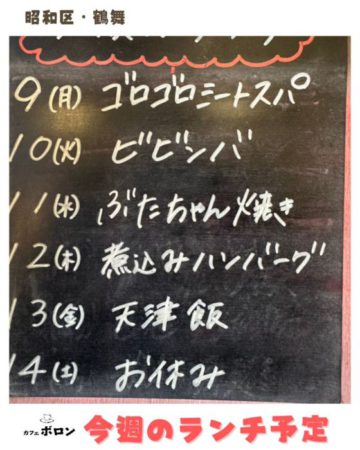 昭和区・鶴舞
9(月) ゴロゴロミートスパ
10(火) ビビンバ
11(水) ぶたちゃん焼き
12(木) 煮込みハンバーグ
13(金) 天津飯
14(土) お休み
カフェ ポロン 今週のランチ予定